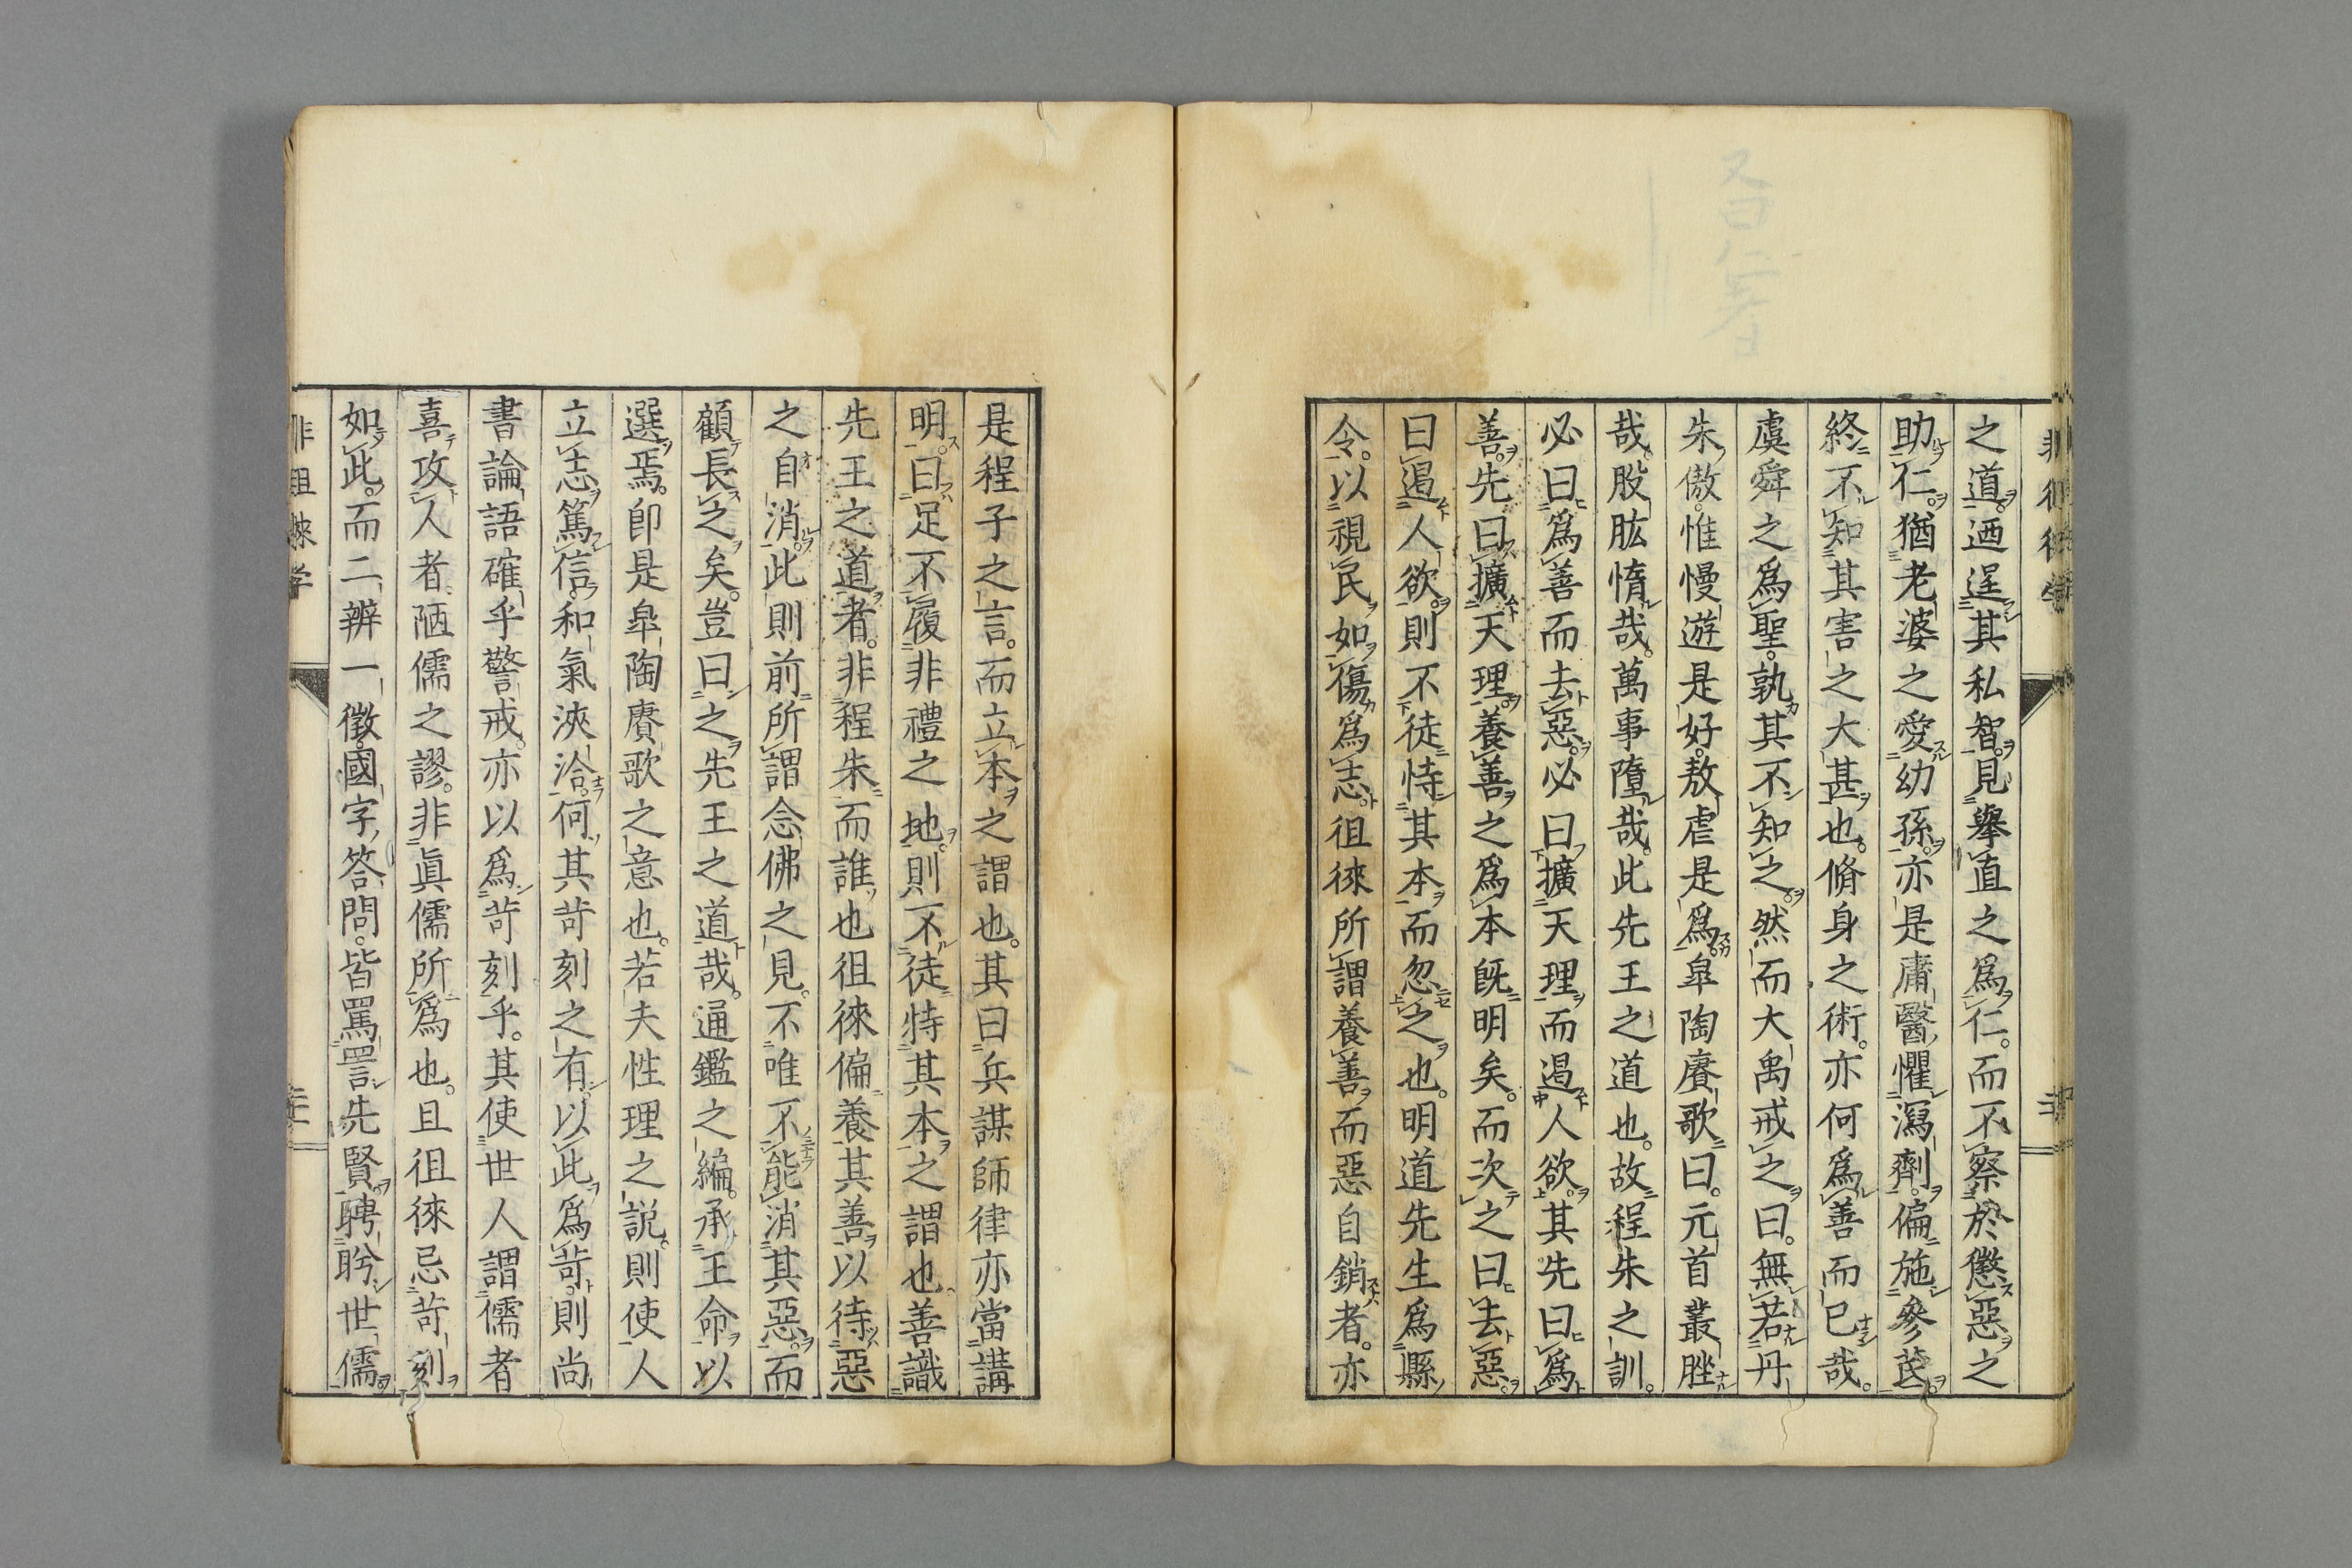 之道。迺逞其私智。見擧直之爲仁。而不察於懲惡之
助仁。猶老婆之愛幼孫。亦是庸醫懼瀉劑。偏施參芪。
終不知其害之大甚也。脩身之術。亦何爲善而已哉。
虞舜之爲聖。孰其不知之。然而大禹戒之曰。無若丹
朱傲。惟慢遊是好。敖虐是爲。皐陶賡歌曰。元首叢脞
哉。股肱惰哉。萬事墮哉。此先王之道也。故程朱之訓。
必曰爲善而去惡。必曰擴天理而遏人欲。其先曰爲
善。先曰擴天理。養善之爲本既明矣。而次之曰去惡。
曰遏人欲。則不徒恃其本而忽之也。明道先生爲縣
令。以視民如傷爲志。徂徠所謂養善而惡自銷者。亦
是程子之言。而立本之謂也。其曰兵謀師律亦當講
明。曰足不履非禮之地。則不徒恃其本之謂也。善識
先王之道者。非程朱而誰也徂徠偏養其善以待惡
之自消。此則前所謂念佛之見。不唯不能消其惡。而
顧長之矣。豈曰之先王之道哉。通鑑之編。承王命以
選焉。卽是皐陶賡歌之意也。若夫性理之説。則使人
立志篤信。和氣浹洽。何其苛刻之有。以此爲苛。則尚
書論語確乎警戒。亦以爲苛刻乎。其使世人謂儒者
喜攻人者。陋儒之謬。非眞儒所爲也。且徂徠忌苛刻
如此。而二辨一徵。國字答問。皆罵詈先賢。聘盻世儒。